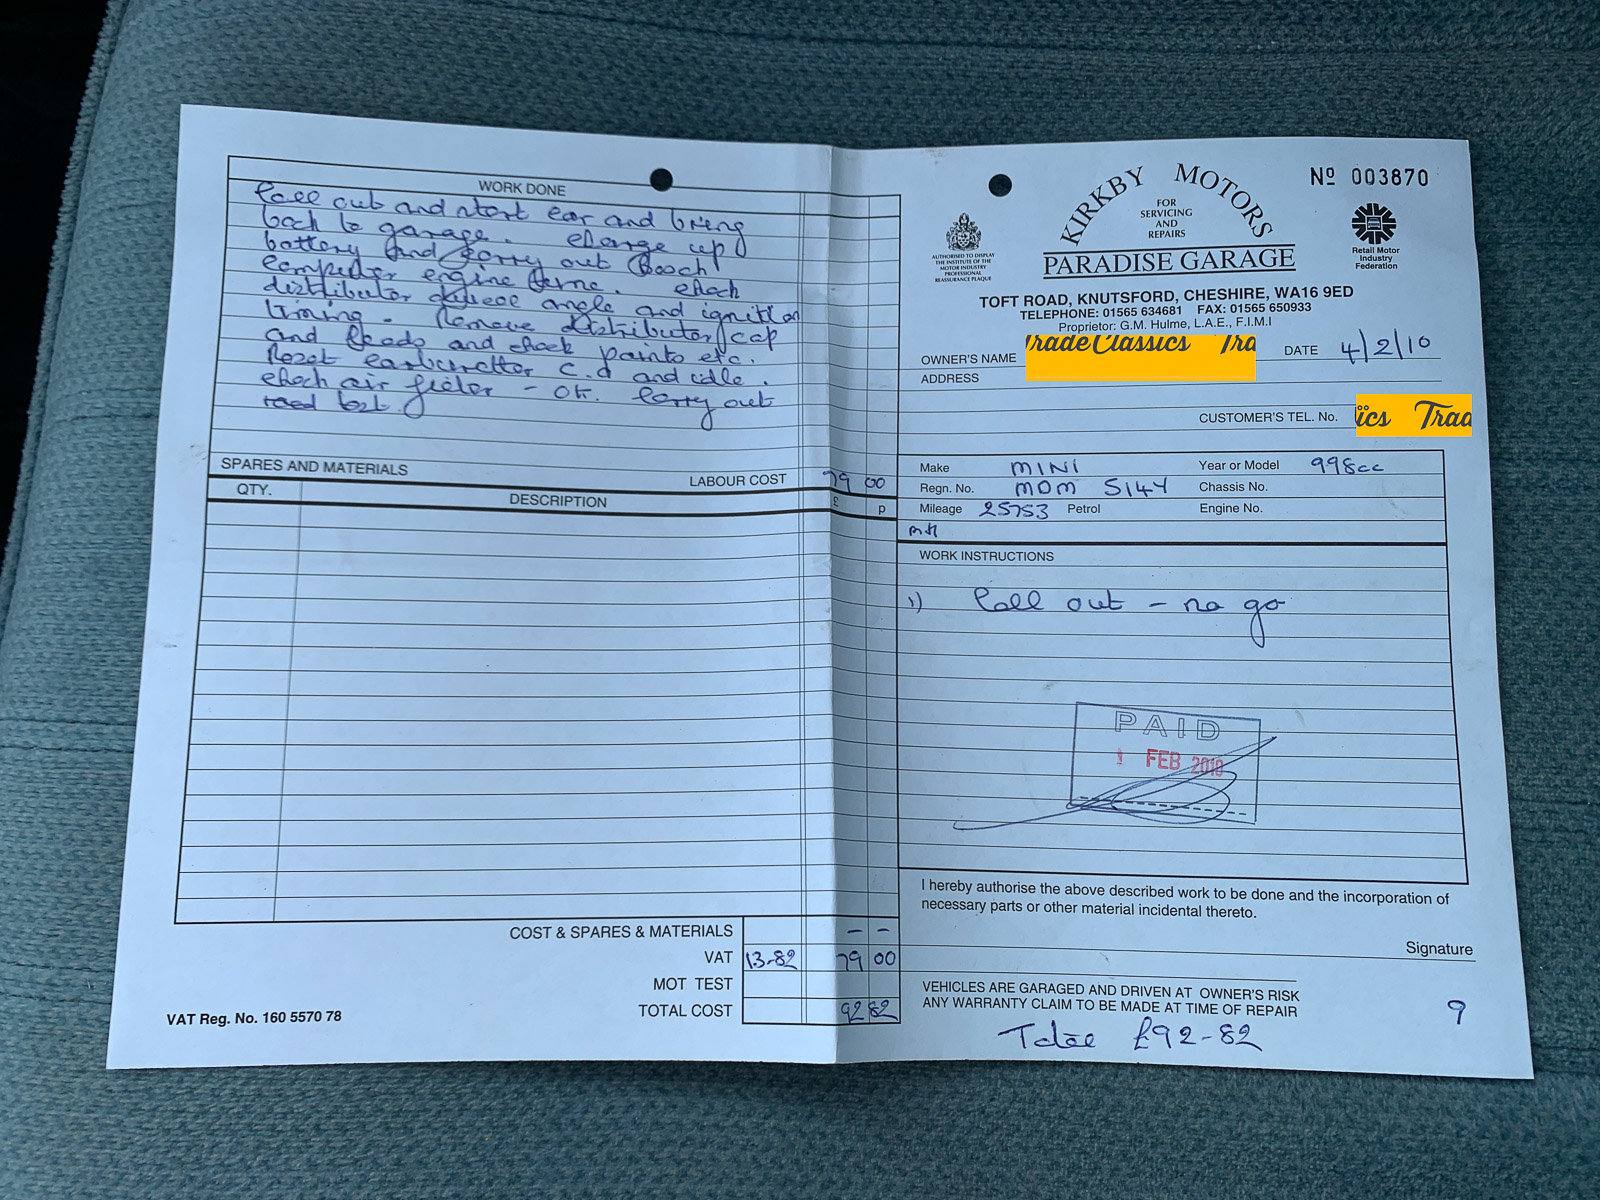 WORK DONE
Call out and start car and bring
back to garage. Charge up
battery and carry out Bosch
computer engine tune. Check
distributor dwell angle and ignition
timing. Remove distributor cap
and leads and check points etc.
Reset carburettor C.O and idle.
Check air filter - OK. Carry out
road test.
SPARES AND MATERIALS
LABOUR COST 79 00
QTY. DESCRIPTION £ p
COST & SPARES & MATERIALS - -
VAT 13-82 79 00
MOT TEST
TOTAL COST 92 82
VAT Reg. No. 160 5570 78
Nº 003870
KIRKBY MOTORS
FOR
SERVICING
AND
REPAIRS
PARADISE GARAGE
AUTHORISED TO DISPLAY
THE INSTITUTE OF THE
MOTOR INDUSTRY
PROFESSIONAL
REASSURANCE PLAQUE
Retail Motor
Industry
Federation
TOFT ROAD, KNUTSFORD, CHESHIRE, WA16 9ED
TELEPHONE: 01565 634681 FAX: 01565 650933
Proprietor: G.M. Hulme, L.A.E., F.I.M.I
OWNER'S NAME TradeClassics Tra DATE 4/2/10
ADDRESS
CUSTOMER'S TEL. No. ics Trad
Make MINI Year or Model 998cc
Regn. No. MDM 514Y Chassis No.
Mileage 25753 Petrol Engine No.
WORK INSTRUCTIONS
1) Call out - no go
PAID
FEB 2010
I hereby authorise the above described work to be done and the incorporation of
necessary parts or other material incidental thereto.
Signature
VEHICLES ARE GARAGED AND DRIVEN AT OWNER'S RISK
ANY WARRANTY CLAIM TO BE MADE AT TIME OF REPAIR
9
Total £92-82